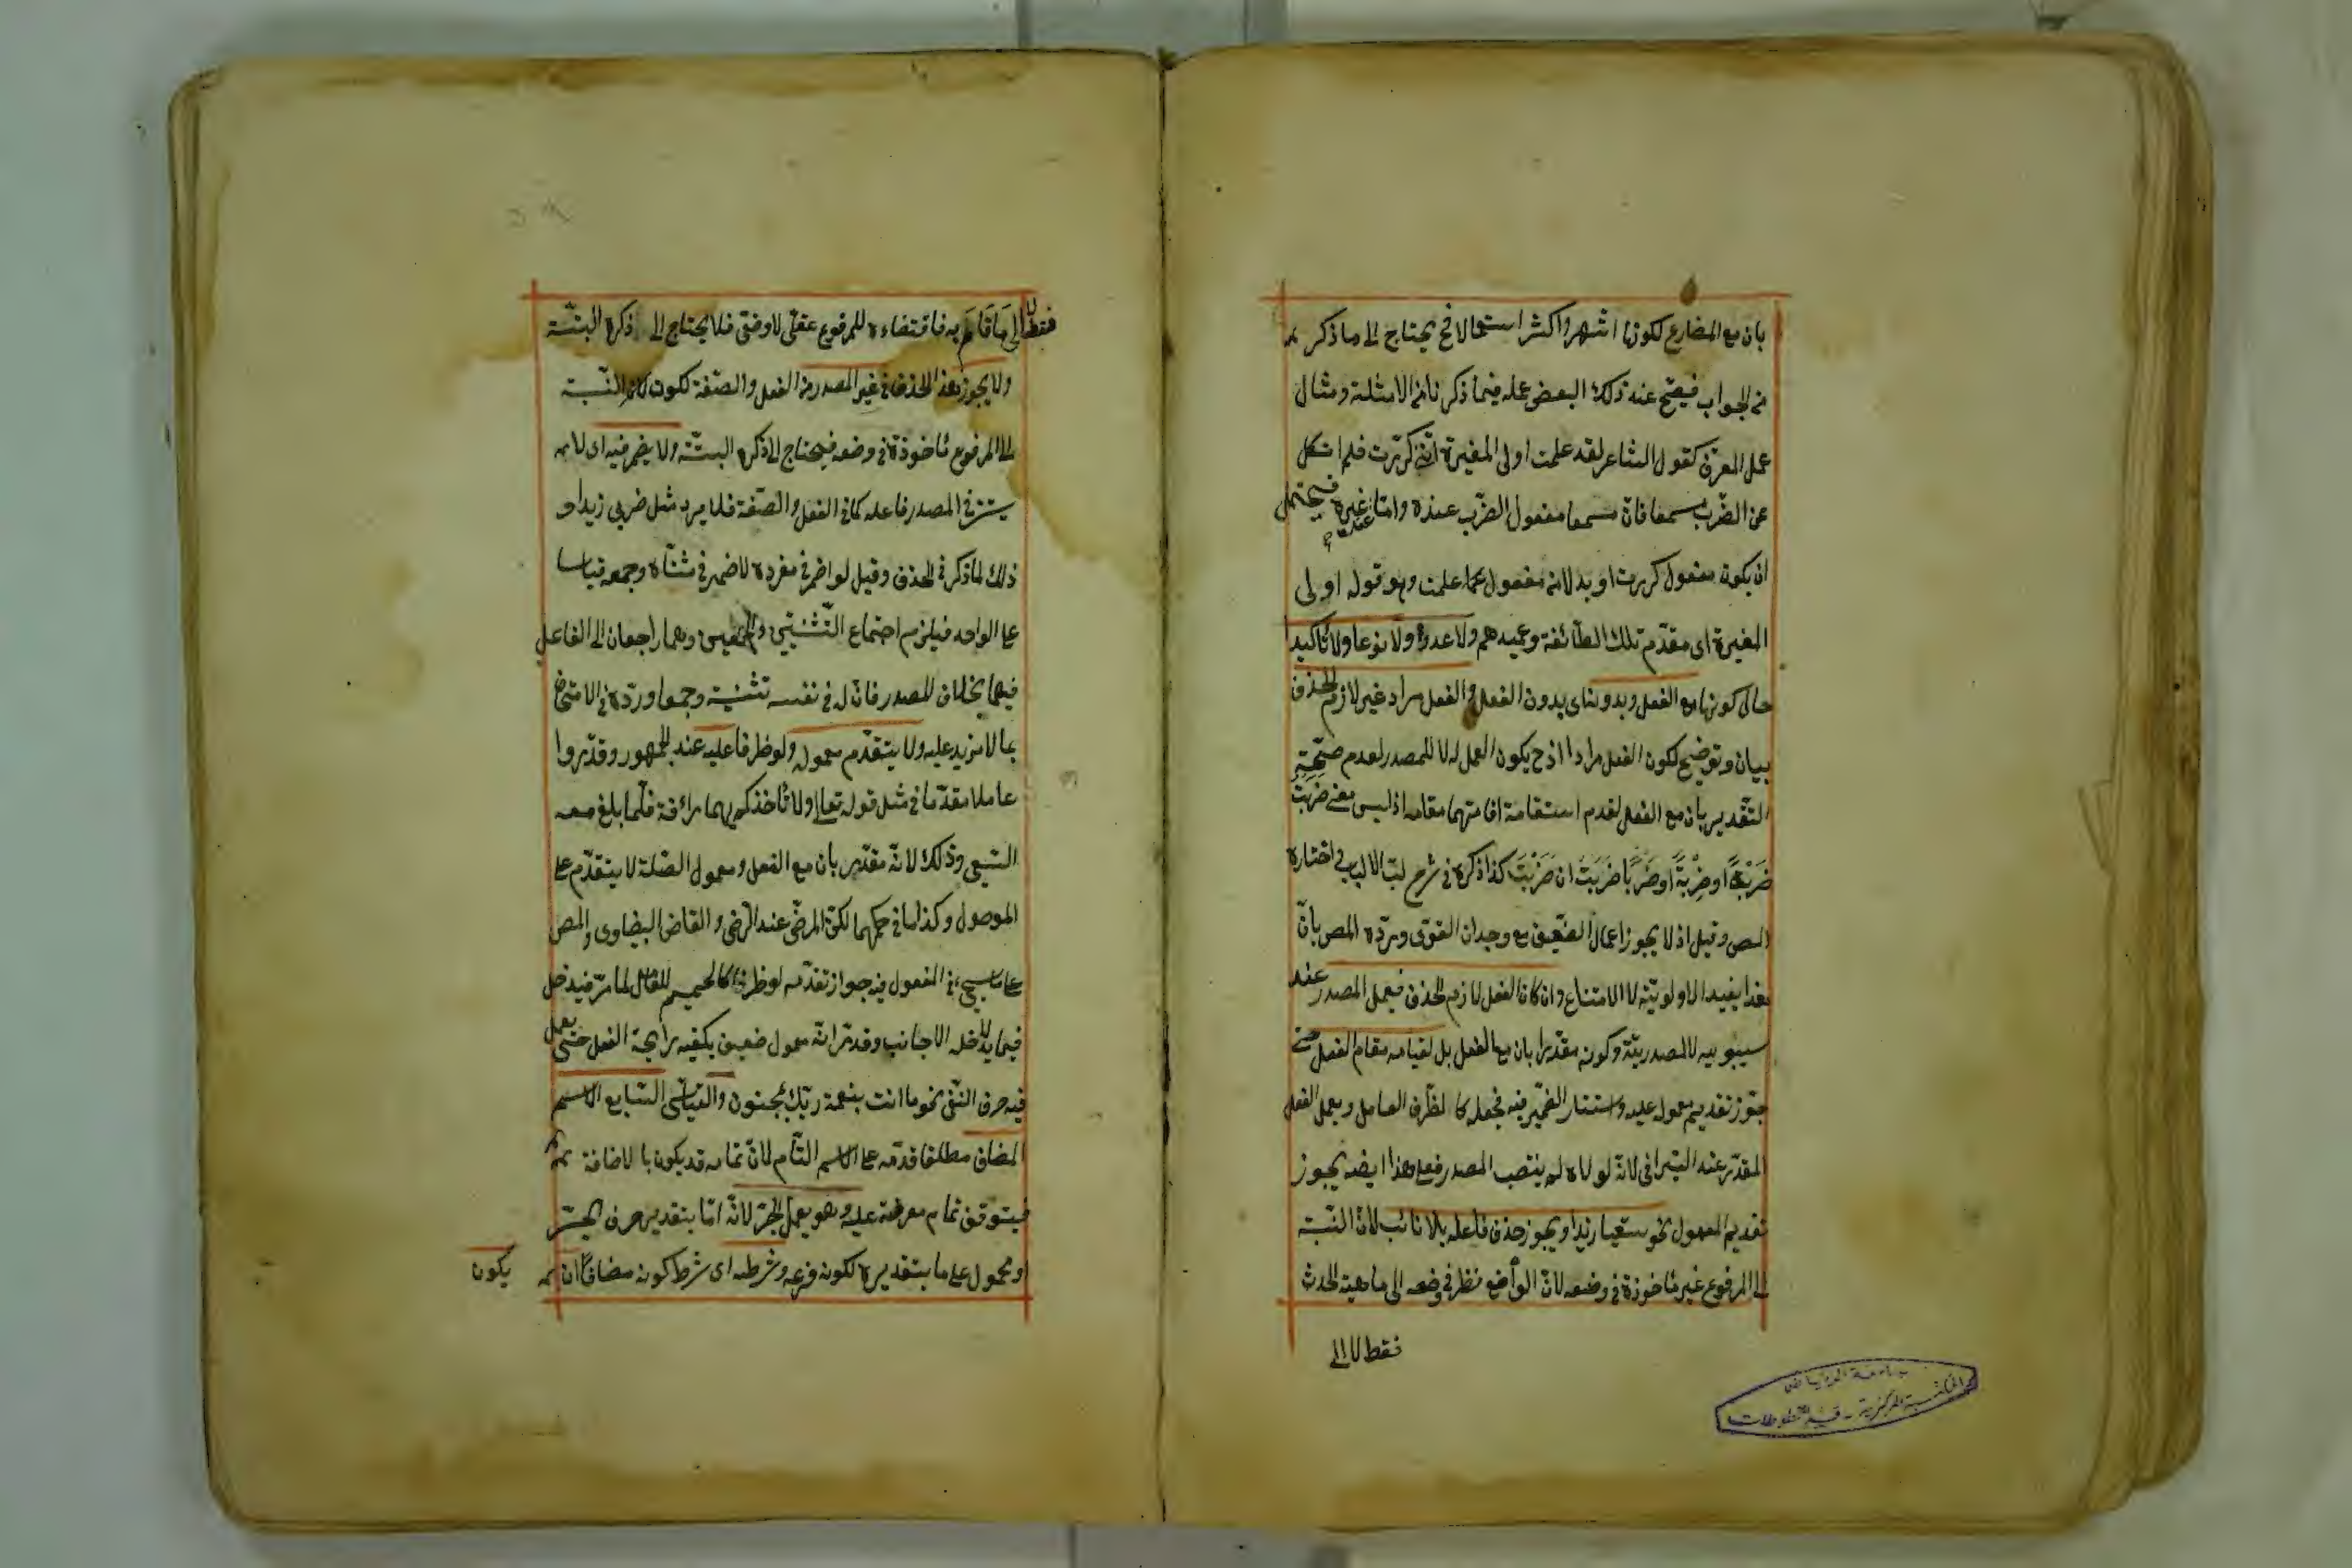 بان مع المضارع لكونها اشهر واكثر استعمالا فح يحتاج الى ما ذكر
من الجواب فيصح عنه ذلك البعض عمله فيما ذكرنا من الامثلة ومثال
عمل المعرف كقول الشاعر لقد علمت اولى المغيرة انني كررت فلم انكل
عن الضرب مسمعا فان مسمعا مفعول الضرب عنده واما عند غيره فيحتمل
ان يكون مفعول كررت او بدلا من مفعول علمت وهو قوله اولى
المغيرة اى مقدم تلك الطائفة وعميدهم ولا عددا ولا نوعا ولا تاكيدا
حال كونها مع الفعل وبدونه اى بدون الفعل والفعل مراد غير لازم الحذف
بيان وتوضيح لكون الفعل مرادا اذ ح يكون العمل له لا للمصدر لعدم صحة
التقدير بان مع الفعل لعدم استقامة اقامتهما مقامه اذ ليس معنى ضربت
ضَرْبَةً او ضِرْبَةً او ضَرْبًا ضَرَبْتَ ان ضَرَبْتَ كذا ذكره فى شرح لب الالباب اختاره
المص وقيل اذ لا يجوز اعمال الضعيف مع وجدان القوى ويرده المص بان
هذا يفيد الاولوية لا الامتناع وان كان الفعل لازم الحذف فيعمل المصدر عند
سيبويه لا للمصدرية وكونه مقدرا بان مع الفعل بل لقيامه مقام الفعل حتى
جوز تقديم معموله عليه واستتار الضمير فيه فجعله كالظرف العامل ويعمل الفعل
المقدر عند السيرافى لانه لولاه لم ينتصب المصدر فعلى هذا ايضا يجوز
تقديم المعمول نحو سقيا زيدا ويجوز حذف فاعله بلا نائب لان النسبة
الى المرفوع غير مأخوذة فى وضعه لان الواضع نظر فى وضعه الى ماهية الحدث
فقط لا الى
جامعة الرياض
المكتبة المركزية - قسم المخطوطات
فقط لا الى ما قام به فاقتضاءه للمرفوع عقلى لا وضعى فلا يحتاج الى ذكره البتة
ولا يجوز هذا الحذف فى غير المصدر من الفعل والصفة لكون النسبة
الى المرفوع مأخوذة فى وضعه فيحتاج الى ذكره البتة ولا يضمر فيه اى لا
يستتر فى المصدر فاعله كما فى الفعل والصفة فلا يرد مثل ضربى زيدا و
ذلك لما ذكر فى الحذف وقيل لو اضمر فى مفرده لاضمر فى مثناه وجمعه قياسا
على الواحد فيلزم اجتماع التثنيتين والجمعين وهما راجعان الى الفاعل
فيهما بخلاف المصدر فان له فى نفسه تثنية وجمعا ورده فى الامتحان
بما لا مزيد عليه ولا يتقدم معموله ولو ظرفا عليه عند الجمهور وقدروا
عاملا مقدما فى مثل قوله تعالى ولا تأخذكم بهما رأفة فلما بلغ معه
السعى وذلك لانه مقدر بان مع الفعل ومعمول الصلة لا يتقدم على
الموصول وكذا ما فى حكمهما لكن المرضى عند الرضى والقاضى البيضاوى والمص
على ما سيجئ فى المفعول فيه جواز تقدمه لو ظرفا لما مر فيدخل
فيما لا يدخله الاجانب وقد مر انه معمول ضعيف يكفيه رايحة الفعل حتى يعمل
فيه حرف النفى نحو ما انت بنعمة ربك بمجنون والقياسى السابع الاسم
المضاف مطلقا قدمه على الاسم التام لان تمامه قد يكون بالاضافة
فيتوقف تمام معرفته عليه وهو يعمل الجر لانه اما بتقدير حرف الجر
او محمول على ما بتقديره لكونه فرعه وشرطه اى شرط كونه مضافا ان
يكون